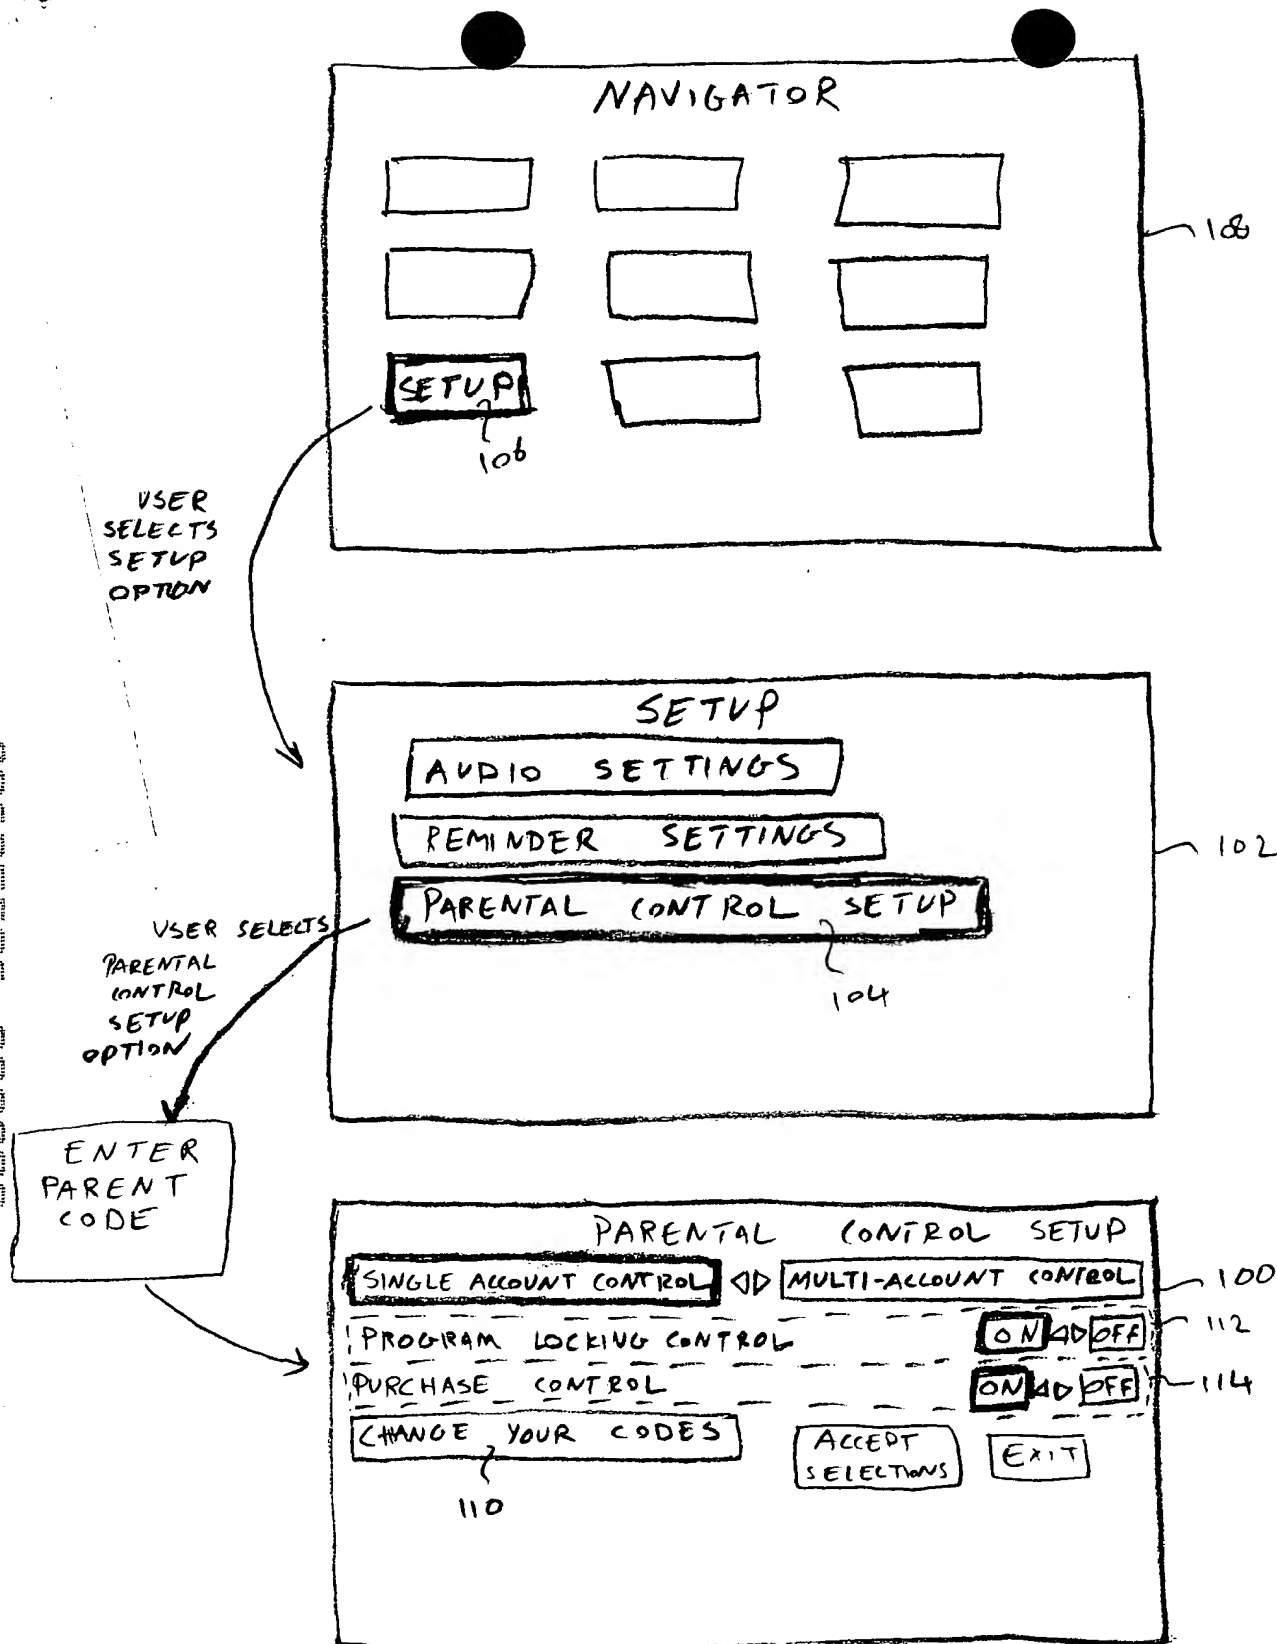 NAVIGATOR
108
SETUP
106
USER
SELECTS
SETUP
OPTION
SETUP
AUDIO SETTINGS
REMINDER SETTINGS
102
PARENTAL CONTROL SETUP
104
USER SELECTS
PARENTAL
CONTROL
SETUP
OPTION
ENTER
PARENT
CODE
PARENTAL CONTROL SETUP
SINGLE ACCOUNT CONTROL MULTI-ACCOUNT CONTROL
100
PROGRAM LOCKING CONTROL ON OFF
112
PURCHASE CONTROL ON OFF
114
CHANGE YOUR CODES ACCEPT SELECTIONS EXIT
110